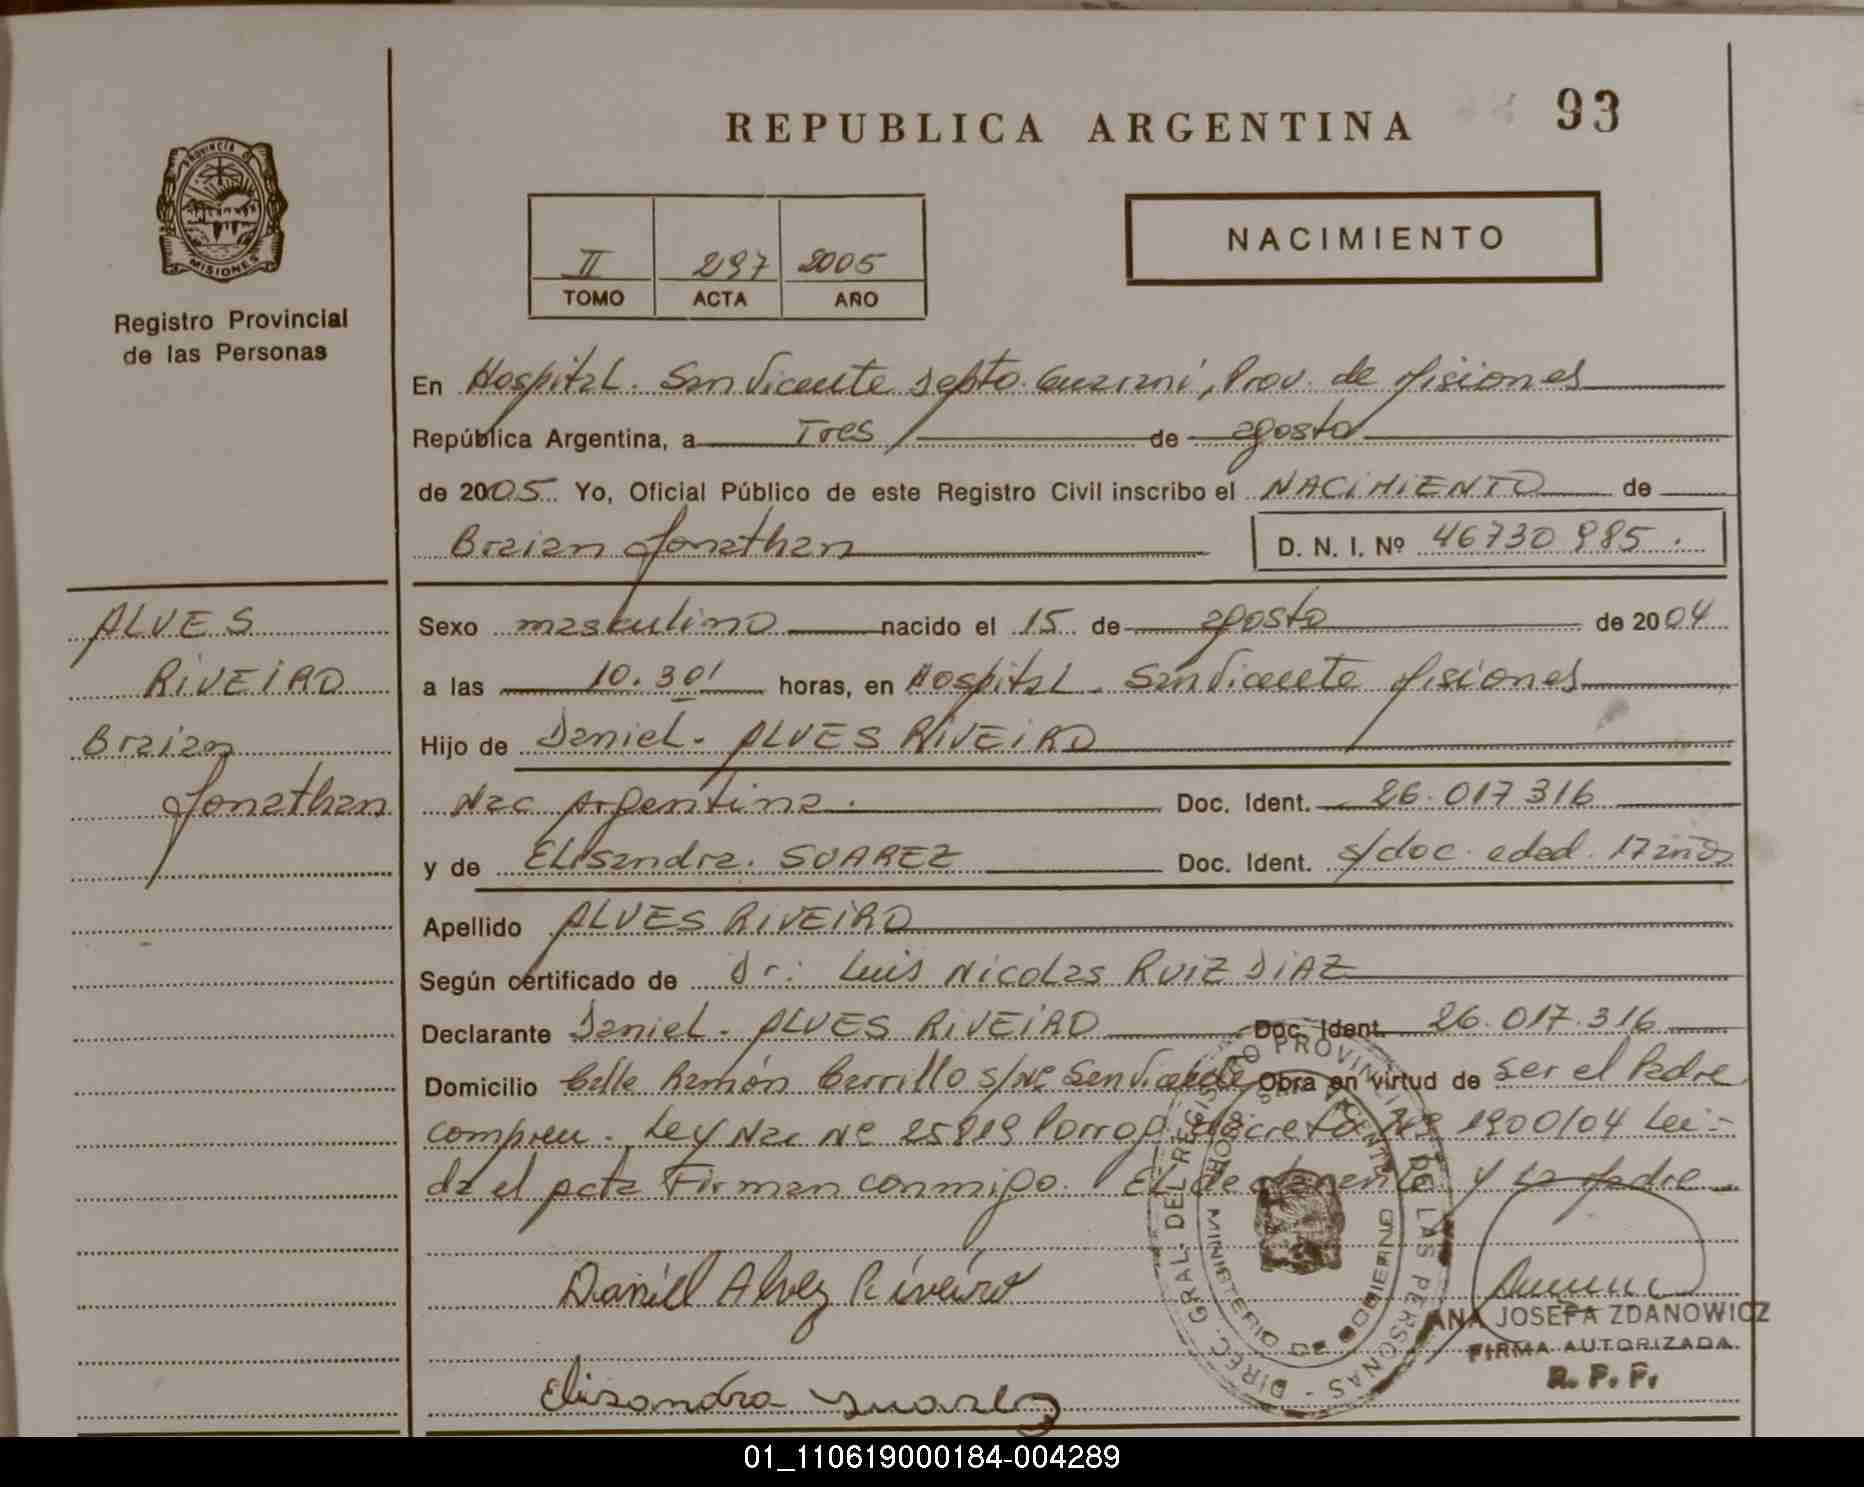 REPUBLICA ARGENTINA
93
PROVINCIA DE
MISIONES
Registro Provincial
de las Personas
II 297 2005
TOMO ACTA AÑO
NACIMIENTO
En Hospital. San Vicente Depto. Guarani, Prov. de Misiones
República Argentina, a Tres de agosto
de 2005 Yo, Oficial Público de este Registro Civil inscribo el NACIMIENTO de
Braian Jonathan D. N. I. Nº 46730985.
ALVES
RIVEIRO
Braian
Jonathan
Sexo masculino nacido el 15 de agosto de 2004
a las 10.30' horas, en Hospital. San Vicente Misiones
Hijo de Daniel. ALVES RIVEIRO
Nac Argentina. Doc. Ident. 26.017316
y de Elisandra. SUAREZ Doc. Ident. s/doc. edad. 17 años
Apellido ALVES RIVEIRO
Según certificado de Dr: Luis Nicolas RUIZ DIAZ
Declarante Daniel. ALVES RIVEIRO Doc. Ident. 26.017.316
Domicilio Calle Ramón Carrillo s/Nº San Vicente Obra en virtud de ser el Padre
Ley Nac Nº 25819 Decreto Nº 1900/04 Lei-
da el acta Firman conmigo. El declarante y la Madre
Daniel Alvez Riveiro
Elisandra Suarez
DIREC. GRAL. DEL REGISTRO PROVINCIAL DE LAS PERSONAS
MINISTERIO DE GOBIERNO
SAN VICENTE
ANA JOSEFA ZDANOWICZ
FIRMA AUTORIZADA
R. P. P.
01_110619000184-004289